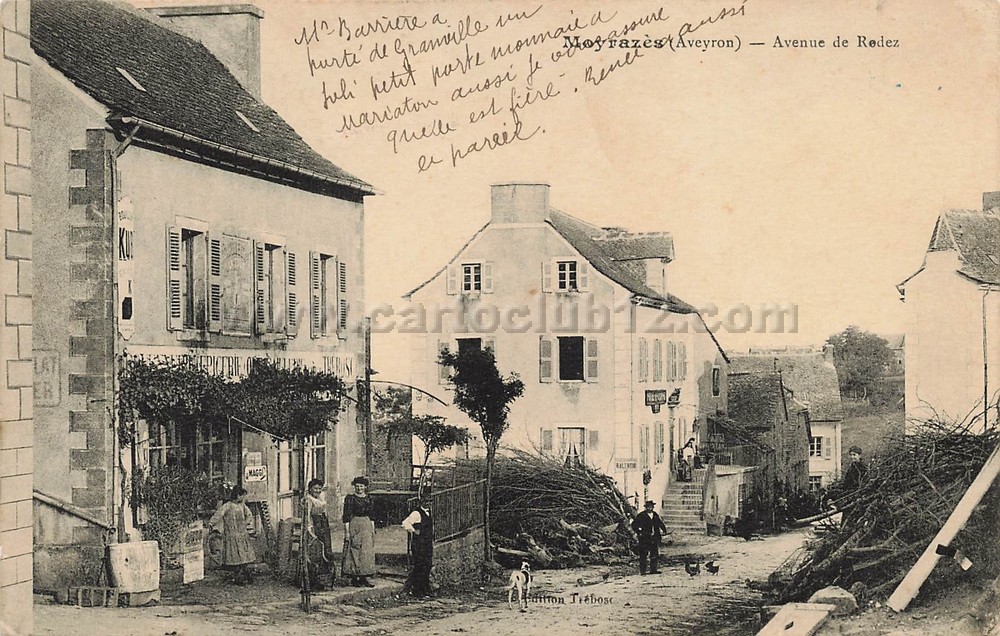 Mr Barrière a
porté de Granville un
joli petit porte monnaie a
Mariaton aussi je vous assure
quelle est fière. Renée a aussi
le pareil.
Moyrazès (Aveyron) — Avenue de Rodez
KUB
EPICERIE
MAGGI
www.cartoclub12.com
Edition Trébosc